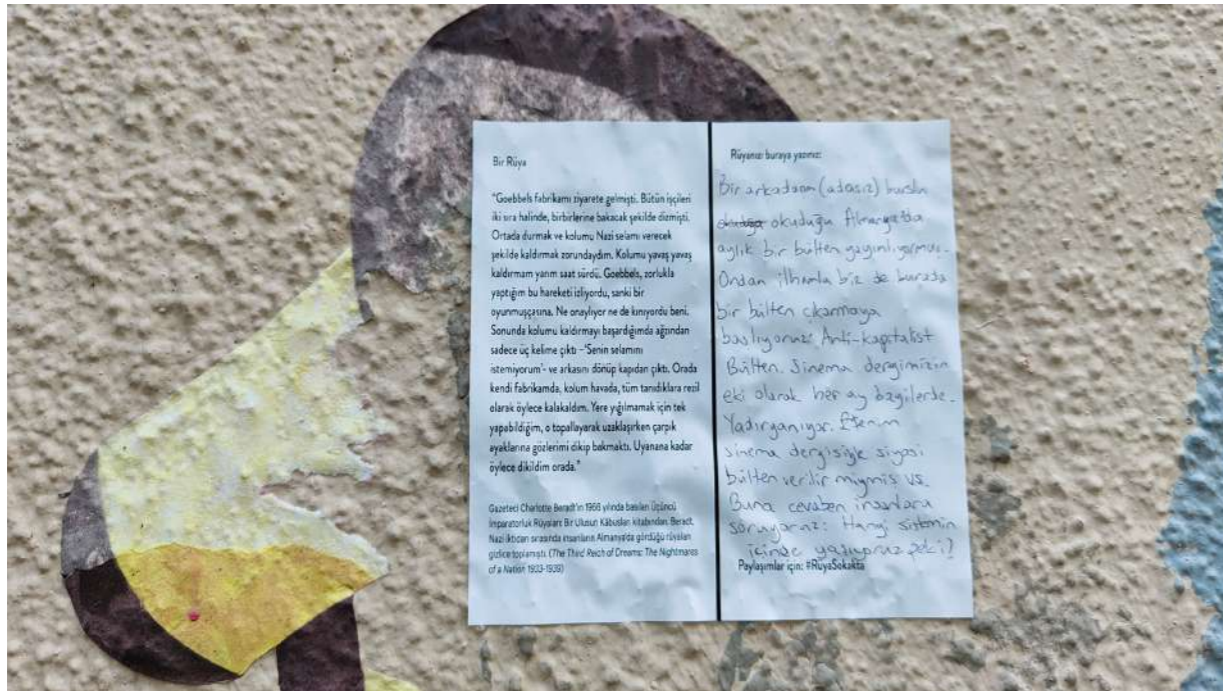 Bir Rüya
"Goebbels fabrikamı ziyarete gelmişti. Bütün işçileri
iki sıra halinde, birbirlerine bakacak şekilde dizmişti.
Ortada durmak ve kolumu Nazi selamı verecek
şekilde kaldırmak zorundaydım. Kolumu yavaş yavaş
kaldırmam yarım saat sürdü. Goebbels, zorlukla
yaptığım bu hareketi izliyordu, sanki bir
oyunmuşçasına. Ne onaylıyor ne de kınıyordu beni.
Sonunda kolumu kaldırmayı başardığımda ağzından
sadece üç kelime çıktı –'Senin selamını
istemiyorum'- ve arkasını dönüp kapıdan çıktı. Orada
kendi fabrikamda, kolum havada, tüm tanıdıklara rezil
olarak öylece kalakaldım. Yere yığılmamak için tek
yapabildiğim, o topallayarak uzaklaşırken çarpık
ayaklarına gözlerimi dikip bakmaktı. Uyanana kadar
öylece dikildim orada."
Gazeteci Charlotte Beradt'ın 1966 yılında basılan Üçüncü
İmparatorluk Rüyaları: Bir Ulusun Kâbusları kitabından. Beradt,
Nazi iktidarı sırasında insanların Almanya'da gördüğü rüyaları
gizlice toplamıştı. (The Third Reich of Dreams: The Nightmares
of a Nation 1933-1939)
Rüyanızı buraya yazınız:
Bir arkadaşım (adaşız) burslu
okuduğu Almanya'da
aylık bir bülten yayınlıyormuş.
Ondan ilhamla biz de burada
bir bülten çıkarmaya
başlıyoruz: Anti-kapitalist
Bülten. Sinema dergimizin
eki olarak her ay bayilerde.
Yadırganıyor. Efenim
sinema dergisiyle siyasi
bülten verilir miymiş vs.
Buna cevaben insanlara
soruyoruz: Hangi sistemin
içinde yaşıyoruz peki?
Paylaşımlar için: #RüyaSokakta